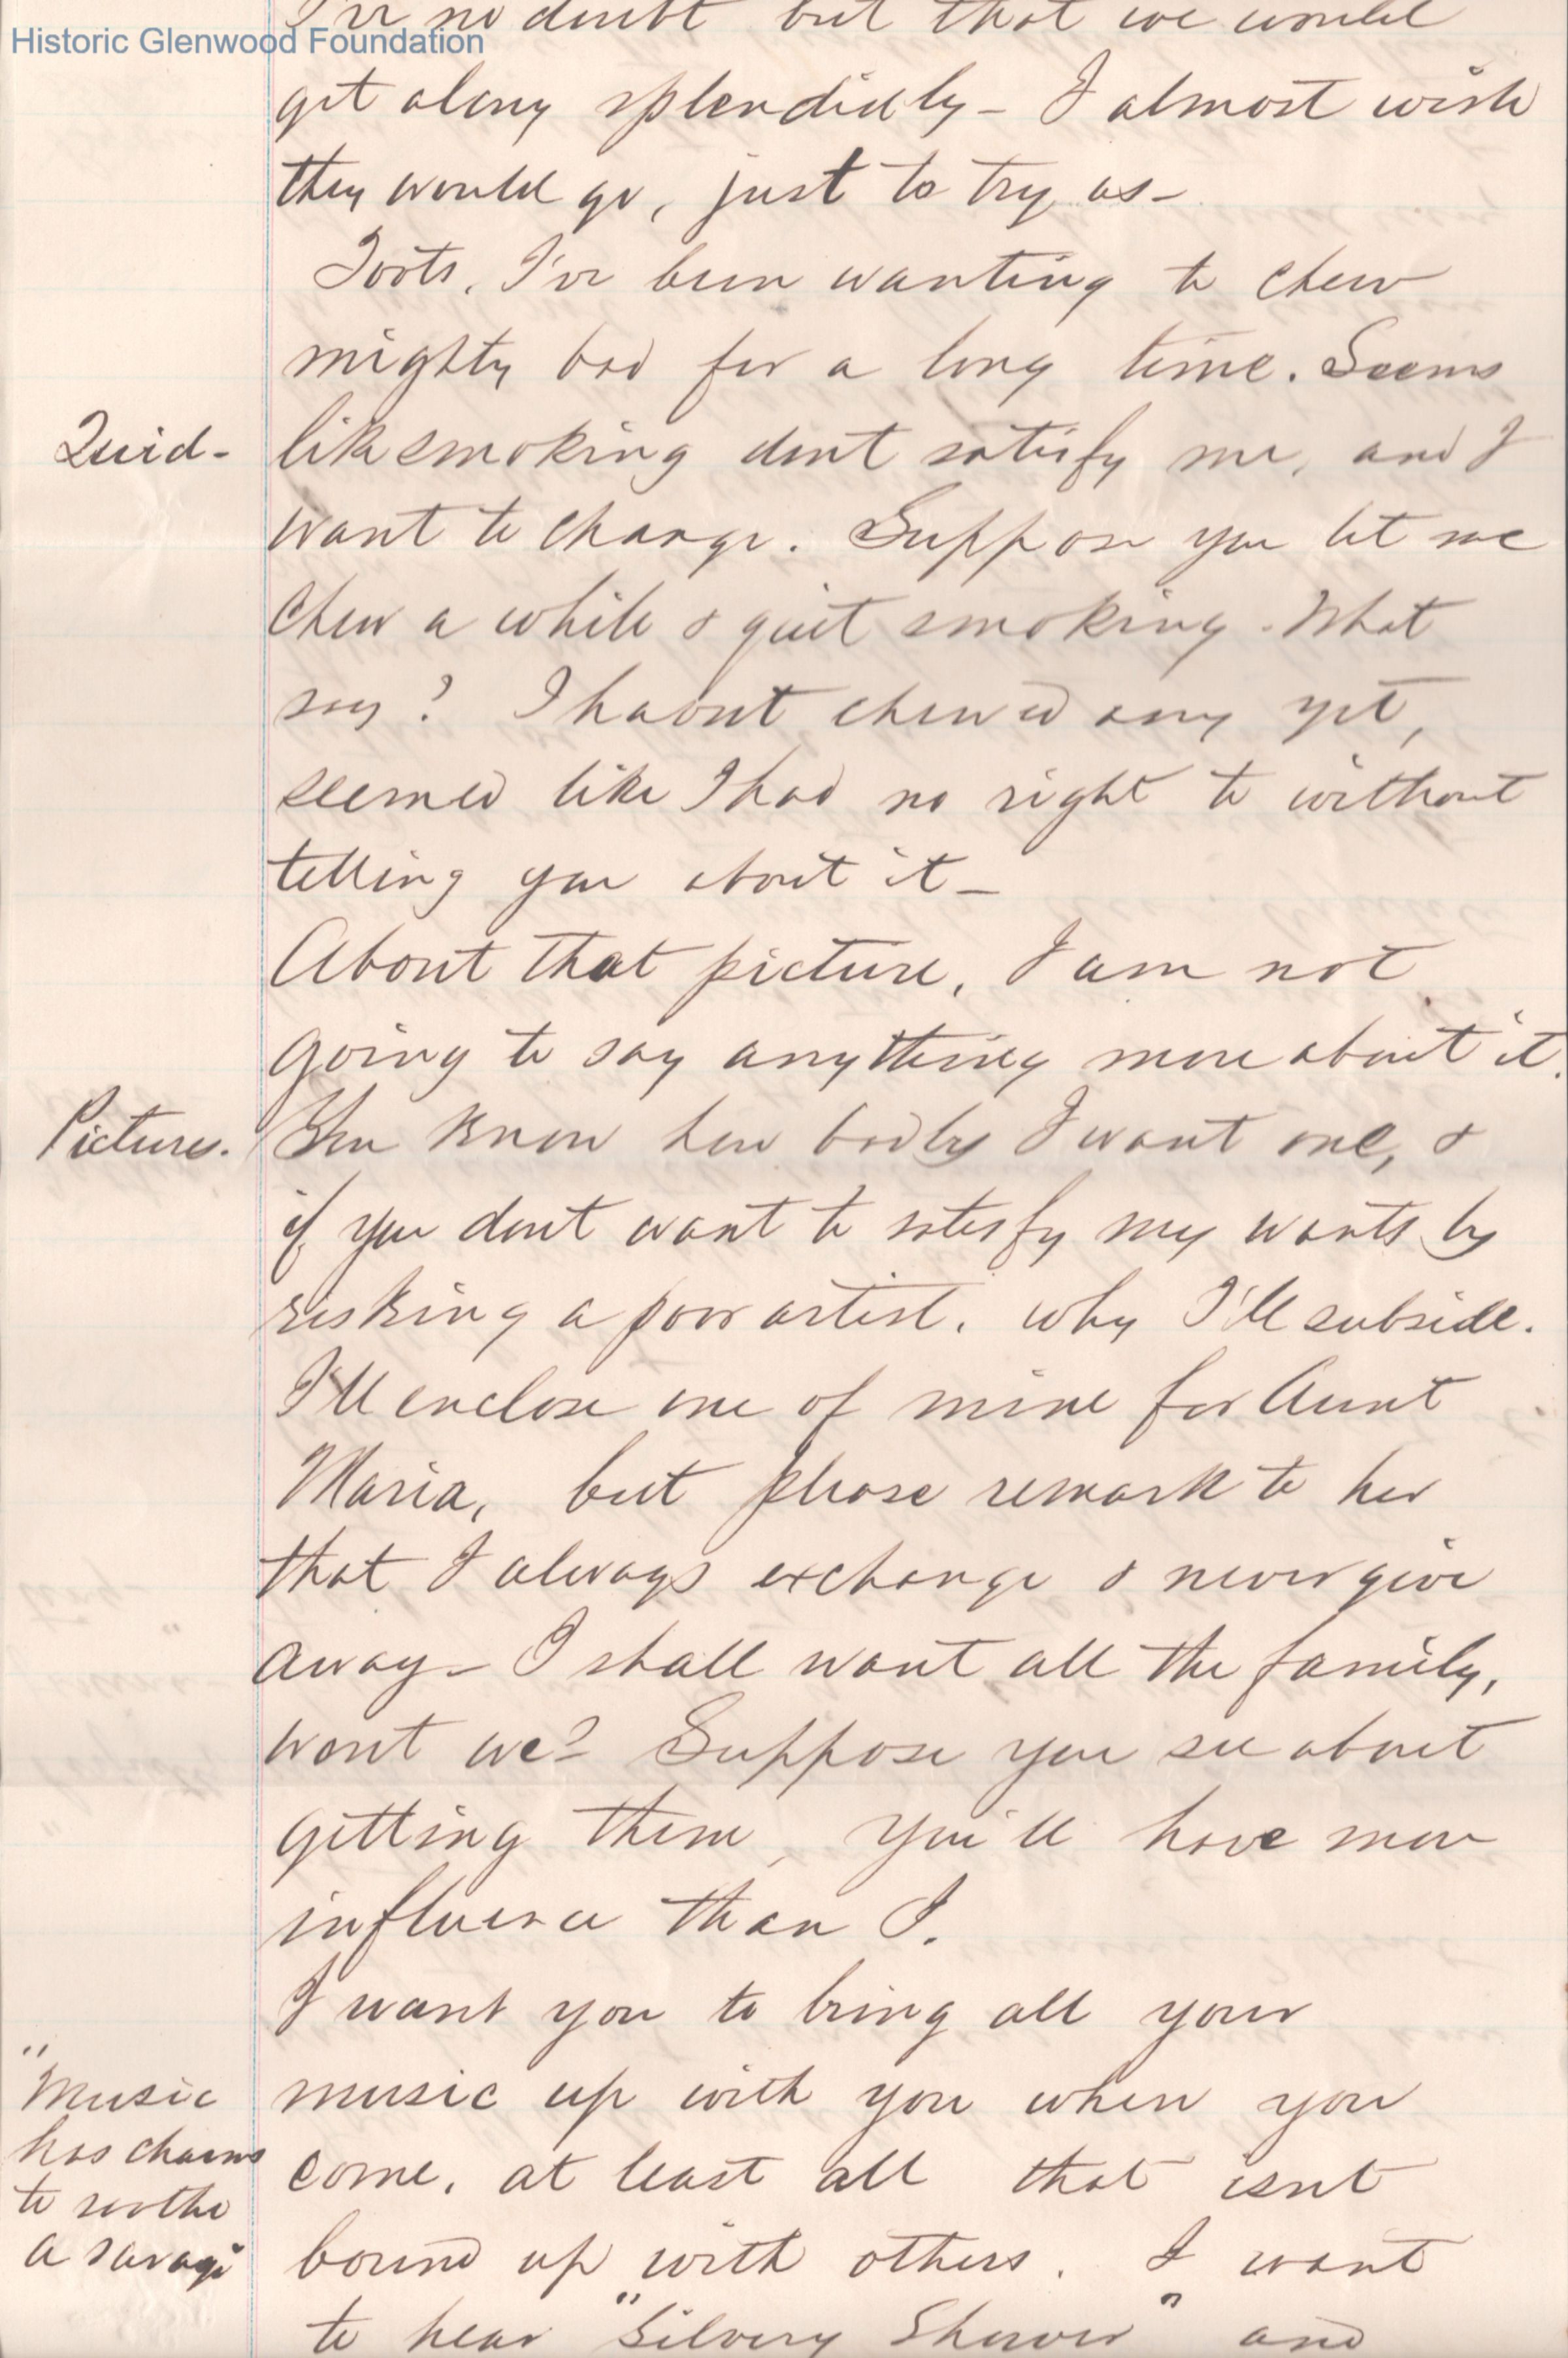 I've no doubt but that we would
Historic Glenwood Foundation
get along splendidly - I almost wish
they would go, just to try us -
Toots, I've been wanting to chew
mighty bad for a long time. Seems
Quid -
like smoking dont satisfy me, and I
want to change. Suppose you let me
chew a while & quit smoking. What
say? I havent chewed any yet,
seemed like I had no right to without
telling you about it -
About that picture, I am not
going to say anything more about it.
Pictures.
You know how badly I want one, &
if you dont want to satisfy my wants by
risking a poor artist, why I'll subside.
I'll enclose one of mine for Aunt
Maria, but please remark to her
that I always exchange & never give
away - I shall want all the family,
wont we? Suppose you see about
getting them, you'll have more
influence than I.
I want you to bring all your
"Music
has charms
to soothe
a savage
music up with you when you
come, at least all that isnt
bound up with others. I want
to hear "Silvery Shower" and